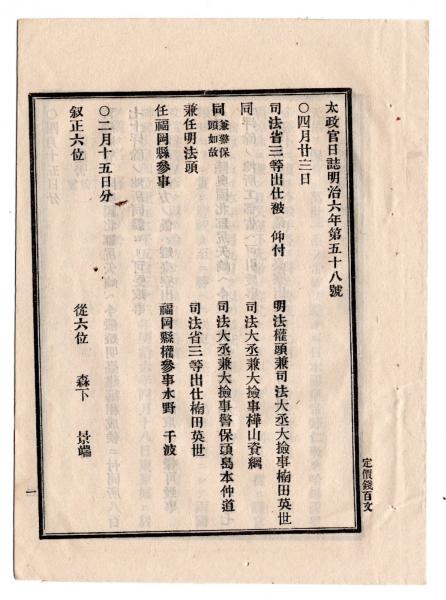 太政官日誌明治六年第五十八號
〇四月廿三日
司法省三等出仕被　仰付　明法權頭兼司法大丞大撿事楠田英世
同　司法大丞兼大撿事樺山資綱
同兼警保頭如故　司法大丞兼大撿事警保頭島本仲道
兼任明法頭　司法省三等出仕楠田英世
任福岡縣參事　福岡縣權參事水野　千波
〇二月十五日分
叙正六位　從六位　森下　景端
定價錢百文
一